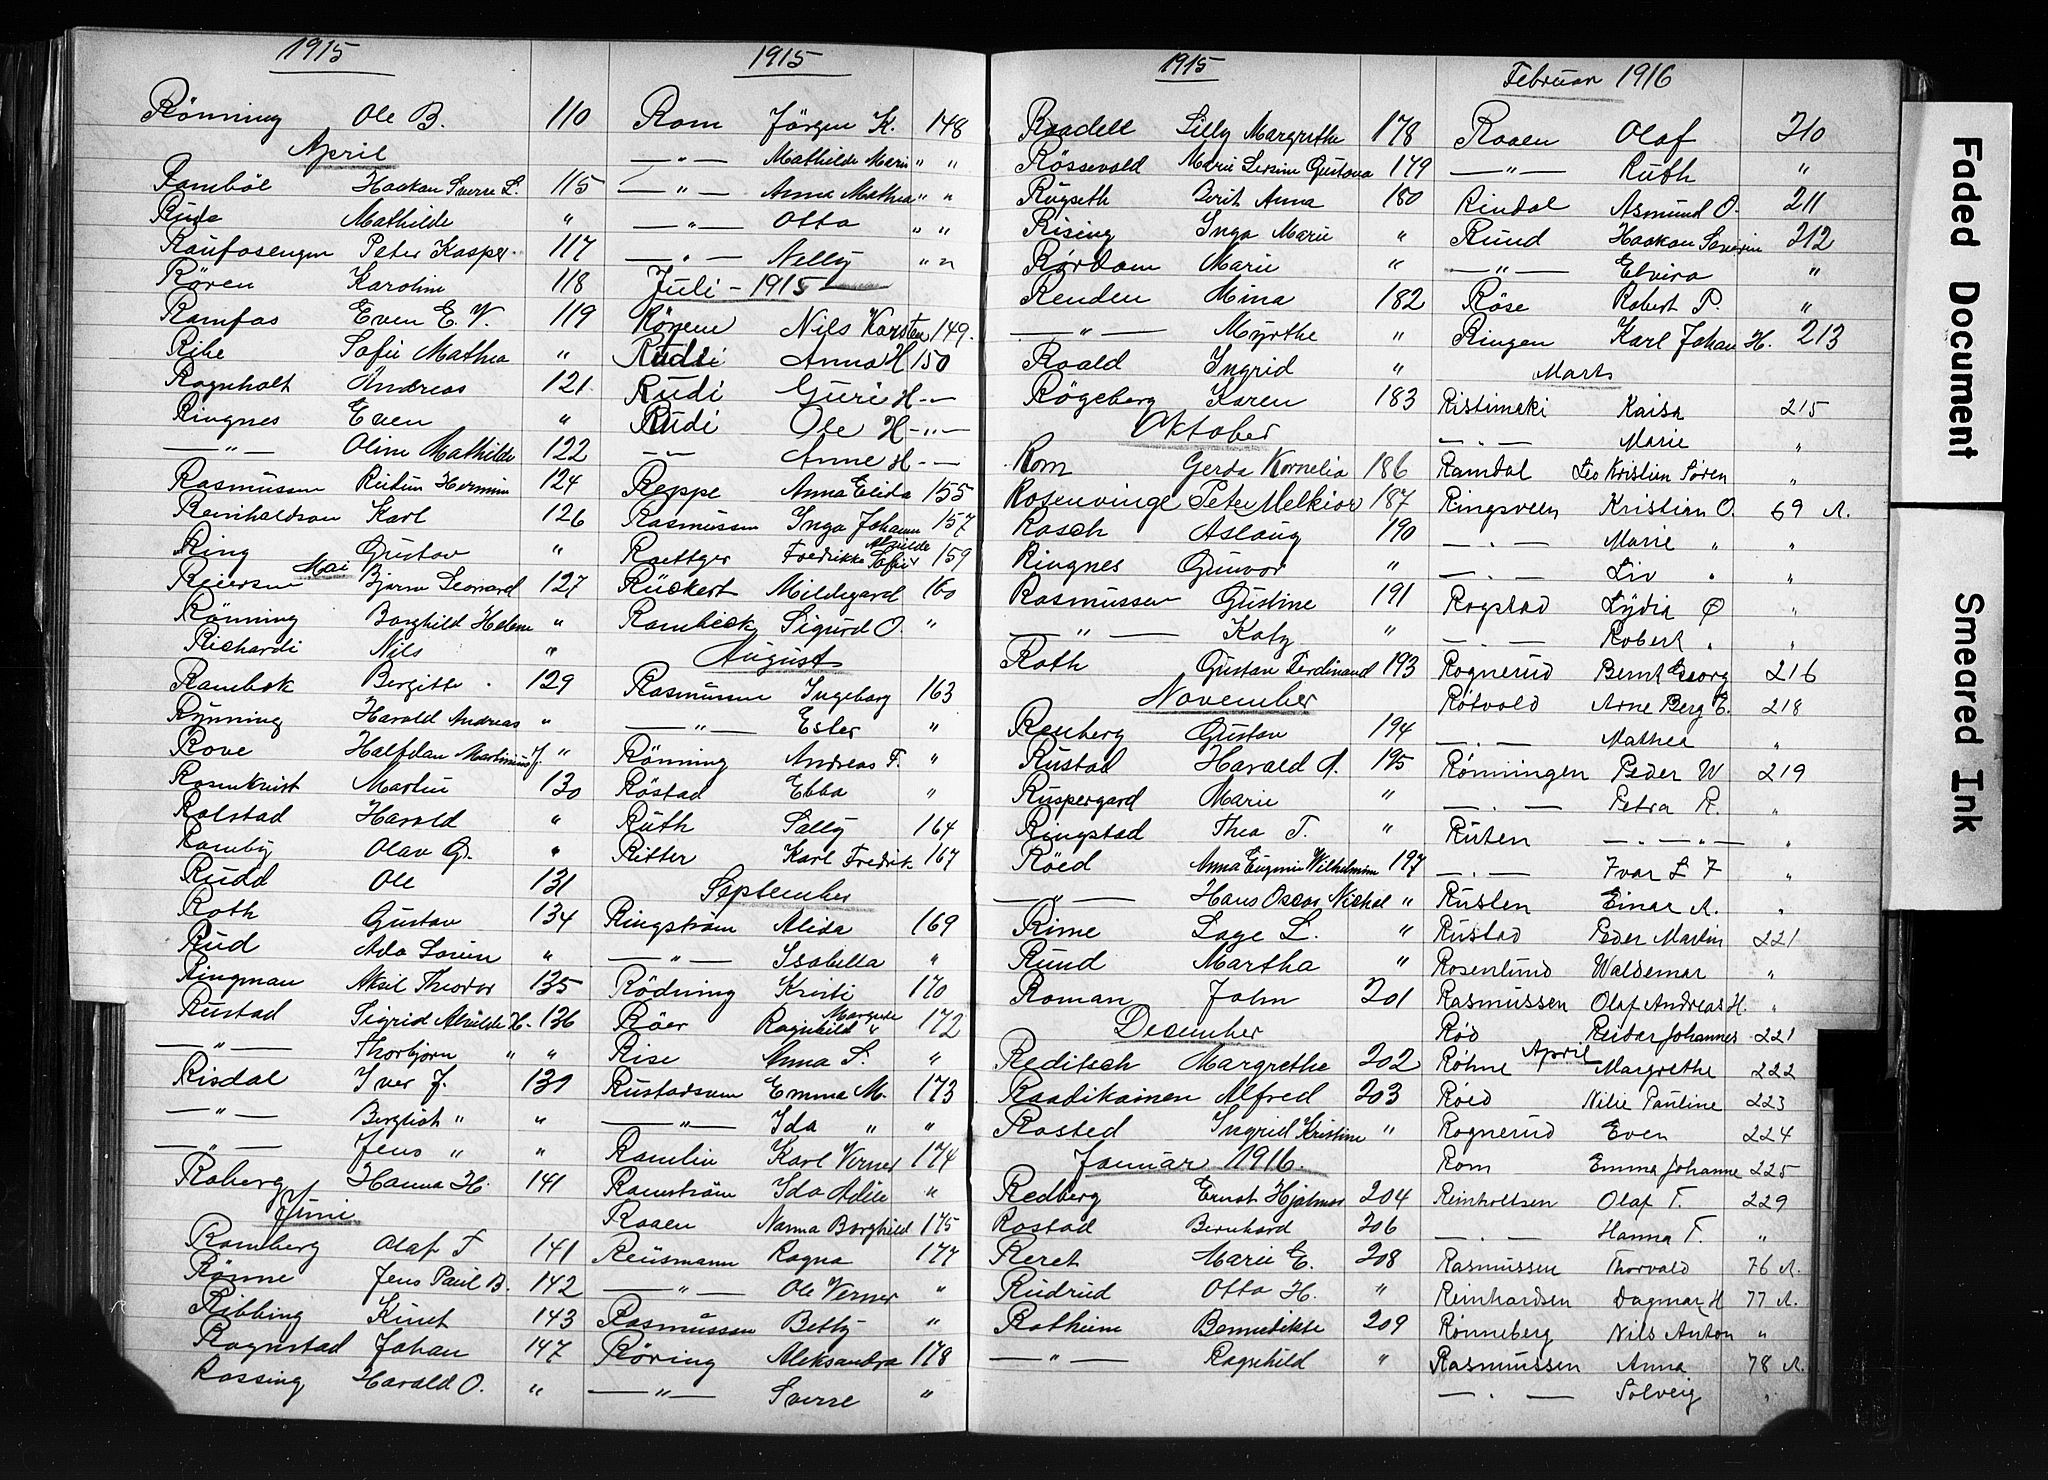 1915
Rönning Ole B. 110
April
Rambøl Haakon Sverre L. 115
Ruds Mathilde "
Raufosengen Peter Kasper 117
Røren Karoline 118
Ramfos Even E. V. 119
Ribe Sofie Mathea "
Ragnholt Andreas 121
Ringnes Even "
—"— Oline Mathilde 122
Rasmussen Reidun Hermine 124
Reinholdson Karl 126
Ring Gustav "
Mai
Reiersen Bjarne Leonard 127
Rönning Borghild Helene "
Richardi Nils "
Rambæk Bergitte 129
Rynning Harald Andreas "
Rove Halfdan Martinius J. "
Rosenkvist Martin 130
Rolstad Harald "
Ramby Olav G. "
Rudd Ole 131
Roth Gustav 134
Rud Ada Lovise "
Ringman Aksel Theodor 135
Rustad Sigrid Alvilde H. 136
—"— Thorbjørn " "
Risdal Iver J. 139
—"— Bergliot " "
—"— Jens " "
Roberg Hanna H. 141
Juni
Romberg Olaf T 141
Rönne Jens Paul B. 142
Ribbing Knut 143
Rognstad Johan 147
Rossing Harald O. "
1915
Rom Jörgen K. 148
—"— Mathilde Marie " "
—"— Anna Mathea " "
—"— Otto " "
—"— Nelly " "
Juli - 1915
Röyem Nils Karsten 149.
Rudi Anna H 150
Rudi Guri H -"-
Rudi Ole H -"-
-"- Anne H -"-
Reppe Anna Elida 155
Rasmussen Inga Johanne 157
Roettger Fredrikke Alvilde Sofie 159
Rückert Mildegard 160
Rambeck Sigurd O. "
August
Rasmussen Ingeborg 163
—"— Ester "
Rönning Andreas F. "
Röstad Ebba "
Ruth Sally 164
Ritter Karl Fredrik 167
September
Ringström Alida 169
—"— Isabella "
Rödning Kristi 170
Röer Ragnhild Margrete " 172
Rise Anna S. "
Rustadsven Emma M. 173
—"— Ida " "
Ramlin Karl Verner 174
Ramström Ida Adele "
Raaen Nanna Borghild 175
Reusmann Ragna 177
—"— Ole Verner "
Rasmussen Betty "
Röring Aleksandra 178
—"— Sverre "
1915
Raadell Lilly Margrethe 178
Rössevold Marie Lersine Gustava 179
Rugseth Berit Anna 180
Rising Inga Marie "
Rördam Marie "
Renden Mina 182
—"— Myrthe "
Roald Ingrid "
Rögeberg Karen 183
Oktober
Rom Gerda Kornelia 186
Rosenvinge Peter Melkior 187
Rasch Aslaug 190
Ringnes Gunvor "
Rasmussen Gustine 191
—"— Katy "
Roth Gustav Ferdinand 193
November
Renberg Gustav 194
Rustad Harald A. 195
Ruspergard Marie "
Ringstad Thea T. "
Röed Anna Eugenie Wilhelmine 197
—"— Hans Oscar Nickol "
Rime Lage L. "
Rund Martha "
Roman John 201
December
Reditsch Margrethe 202
Raadikainen Alfred 203
Rosted Ingrid Kristine "
Januar 1916.
Redberg Ernst Hjalmar 204
Rostad Bernhard 206
Reret Marie E. 208
Rudrud Otto H. "
Rotheim Bennedikte 209
—"— Ragnhild "
Februar 1916
Raaen Olaf 210
—"— Ruth "
Rindal Asmund O. 211
Rund Haakon Severin 212
—"— Elvira "
Röse Robert P. "
Ringen Karl Johan H. 213
Marts
Ristimaki Kaisa 215
—"— Marie "
Ramdal Leo Kristian Sören "
Ringsveen Kristian O. 69 A.
—"— Marie " "
—"— Liv " "
Rogstad Lydia Ø "
—"— Robert " "
Rognerud Bernt Georg 216
Røtvold Arne Berg E. 218
—"— Mathea "
Rønningen Peder W 219
—"— Petra R. "
Ruten —"— "
—"— Ivar L F "
Ruslen Einar A. "
Rustad Peder Martin 221
Rosenlund Waldemar "
Rasmussen Olaf Andreas H. "
Rød Reidar Johannes 221
April
Røhne Margrethe 222
Røed Nilie Pauline 223
Rognerud Even 224
Rom Emma Johanne 225
Reinholtsen Olaf T. 229
—"— Hanna T. "
Rasmussen Thorvald 76 A.
Reinhardsen Dagmar H 77 A.
Rønneberg Nils Anton "
Rasmussen Anna 78 A.
—"— Solveig "
Faded Document
Smeared Ink